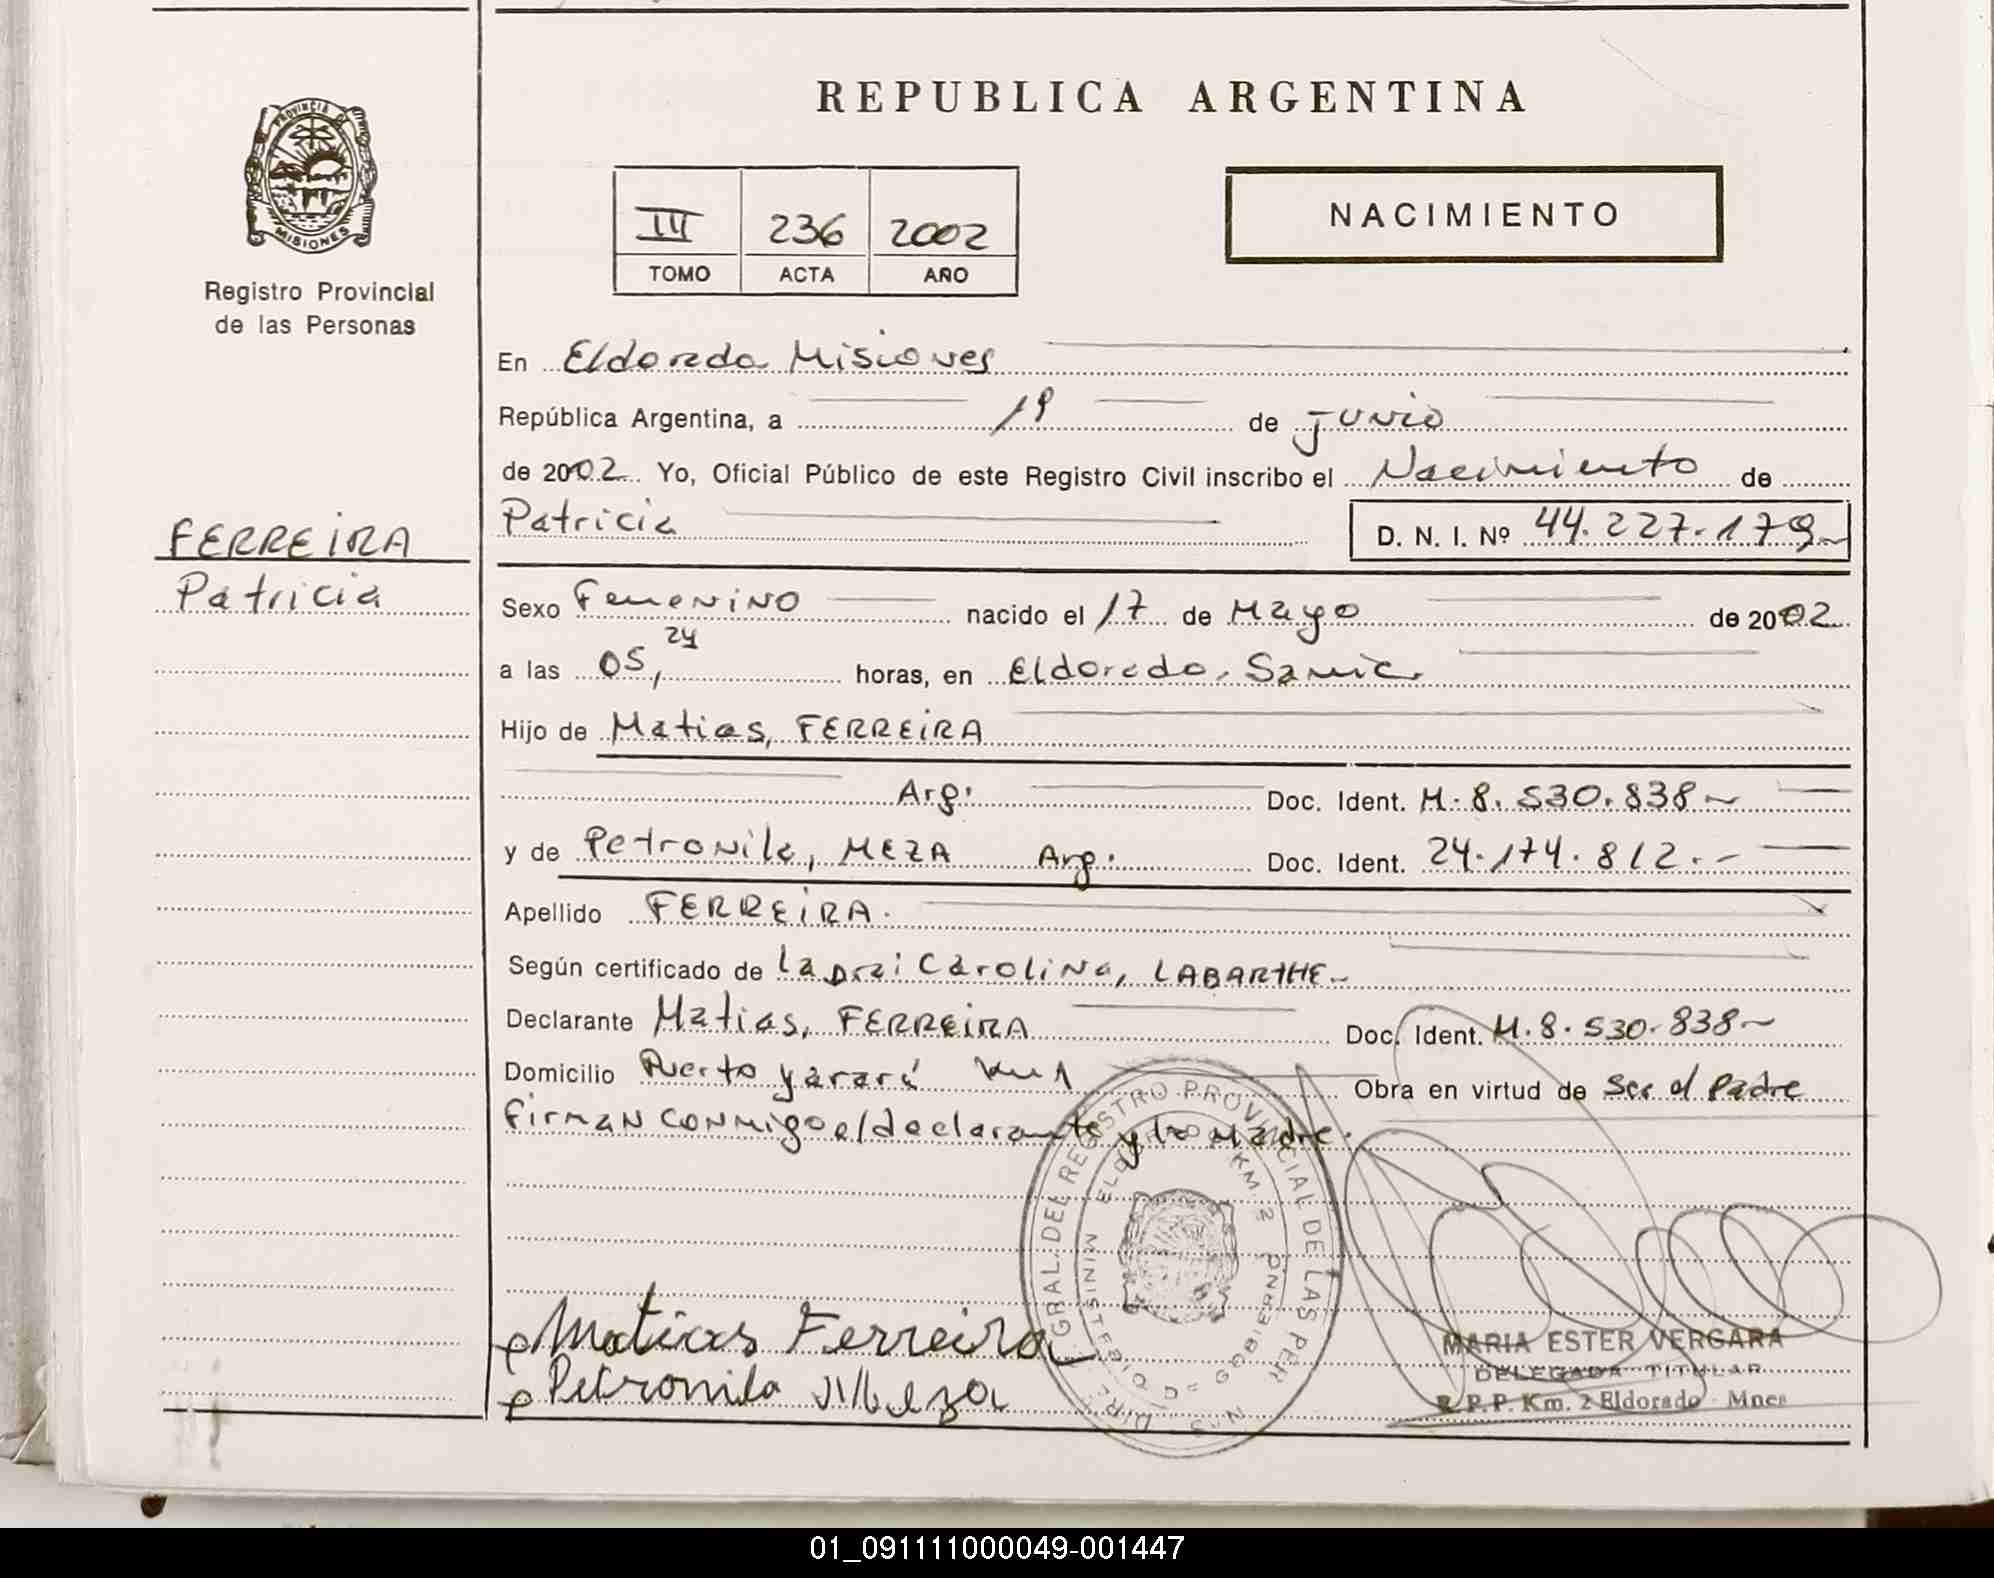 REPUBLICA ARGENTINA
PROVINCIA DE
MISIONES
Registro Provincial
de las Personas
III 236 2002
TOMO ACTA AÑO
NACIMIENTO
En Eldorado Misiones
República Argentina, a 19 de junio
de 2002 Yo, Oficial Público de este Registro Civil inscribo el Nacimiento de
Patricia D. N. I. Nº 44.227.179
FERREIRA
Patricia
Sexo Femenino nacido el 17 de Mayo de 2002
a las 05,24 horas, en Eldorado, Samic.
Hijo de Matias, FERREIRA
Arg. Doc. Ident. M. 8.530.838
y de Petronila, MEZA Arg. Doc. Ident. 24.174.812.-
Apellido FERREIRA.
Según certificado de La Carolina, LABARTHE
Declarante Matias, FERREIRA Doc. Ident. M. 8.530.838
Domicilio Puerto Yarará Km 1 Obra en virtud de ser el Padre
Firman conmigo el declarante y la Madre.
Matias Ferreira
Petronila Meza
GRAL. DEL REGISTRO PROVINCIAL DE LAS PER
KM. 2
MARIA ESTER VERGARA
DELEGADA TITULAR
R.P.P. Km. 2 Eldorado - Mnes
01_091111000049-001447